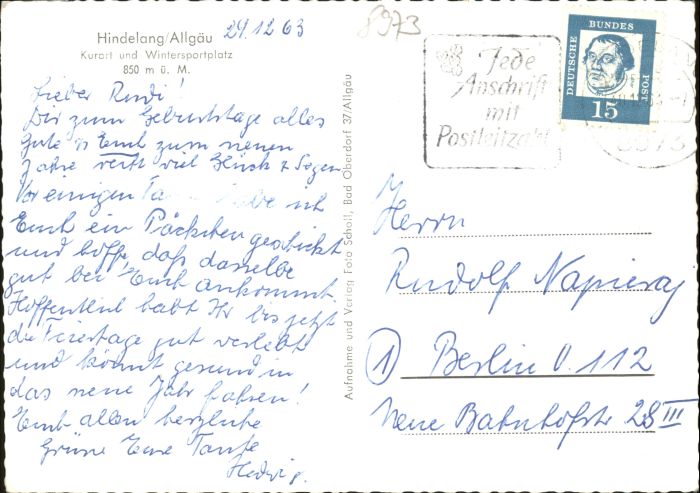 Hindelang/Allgäu
Kurort und Wintersportplatz
850 m ü. M.
29.12.63
8973
Lieber Rudi!
Dir zum Geburtstage alles
Gute u. Euch zum neuen
Jahre recht viel Glück + Segen
Vor einigen habe ich
Euch ein Päckchen geschickt
und hoffe, daß dasselbe
gut bei Euch ankommt.
Hoffentlich habt Ihr bis jetzt
die Feiertage gut verlebt
und könnt gesund in
das neue Jahr fahren!
Euch allen herzliche
Grüße Eure Tante
Hedwig.
Aufnahme und Verlag Foto Scholl, Bad Oberdorf 37/Allgäu
Jede
Anschrift
mit
Postleitzahl
DEUTSCHE BUNDES POST
15
8973
Herrn
Rudolf Napieraj
1 Berlin O. 112
Neue Bahnhofstr 28 III